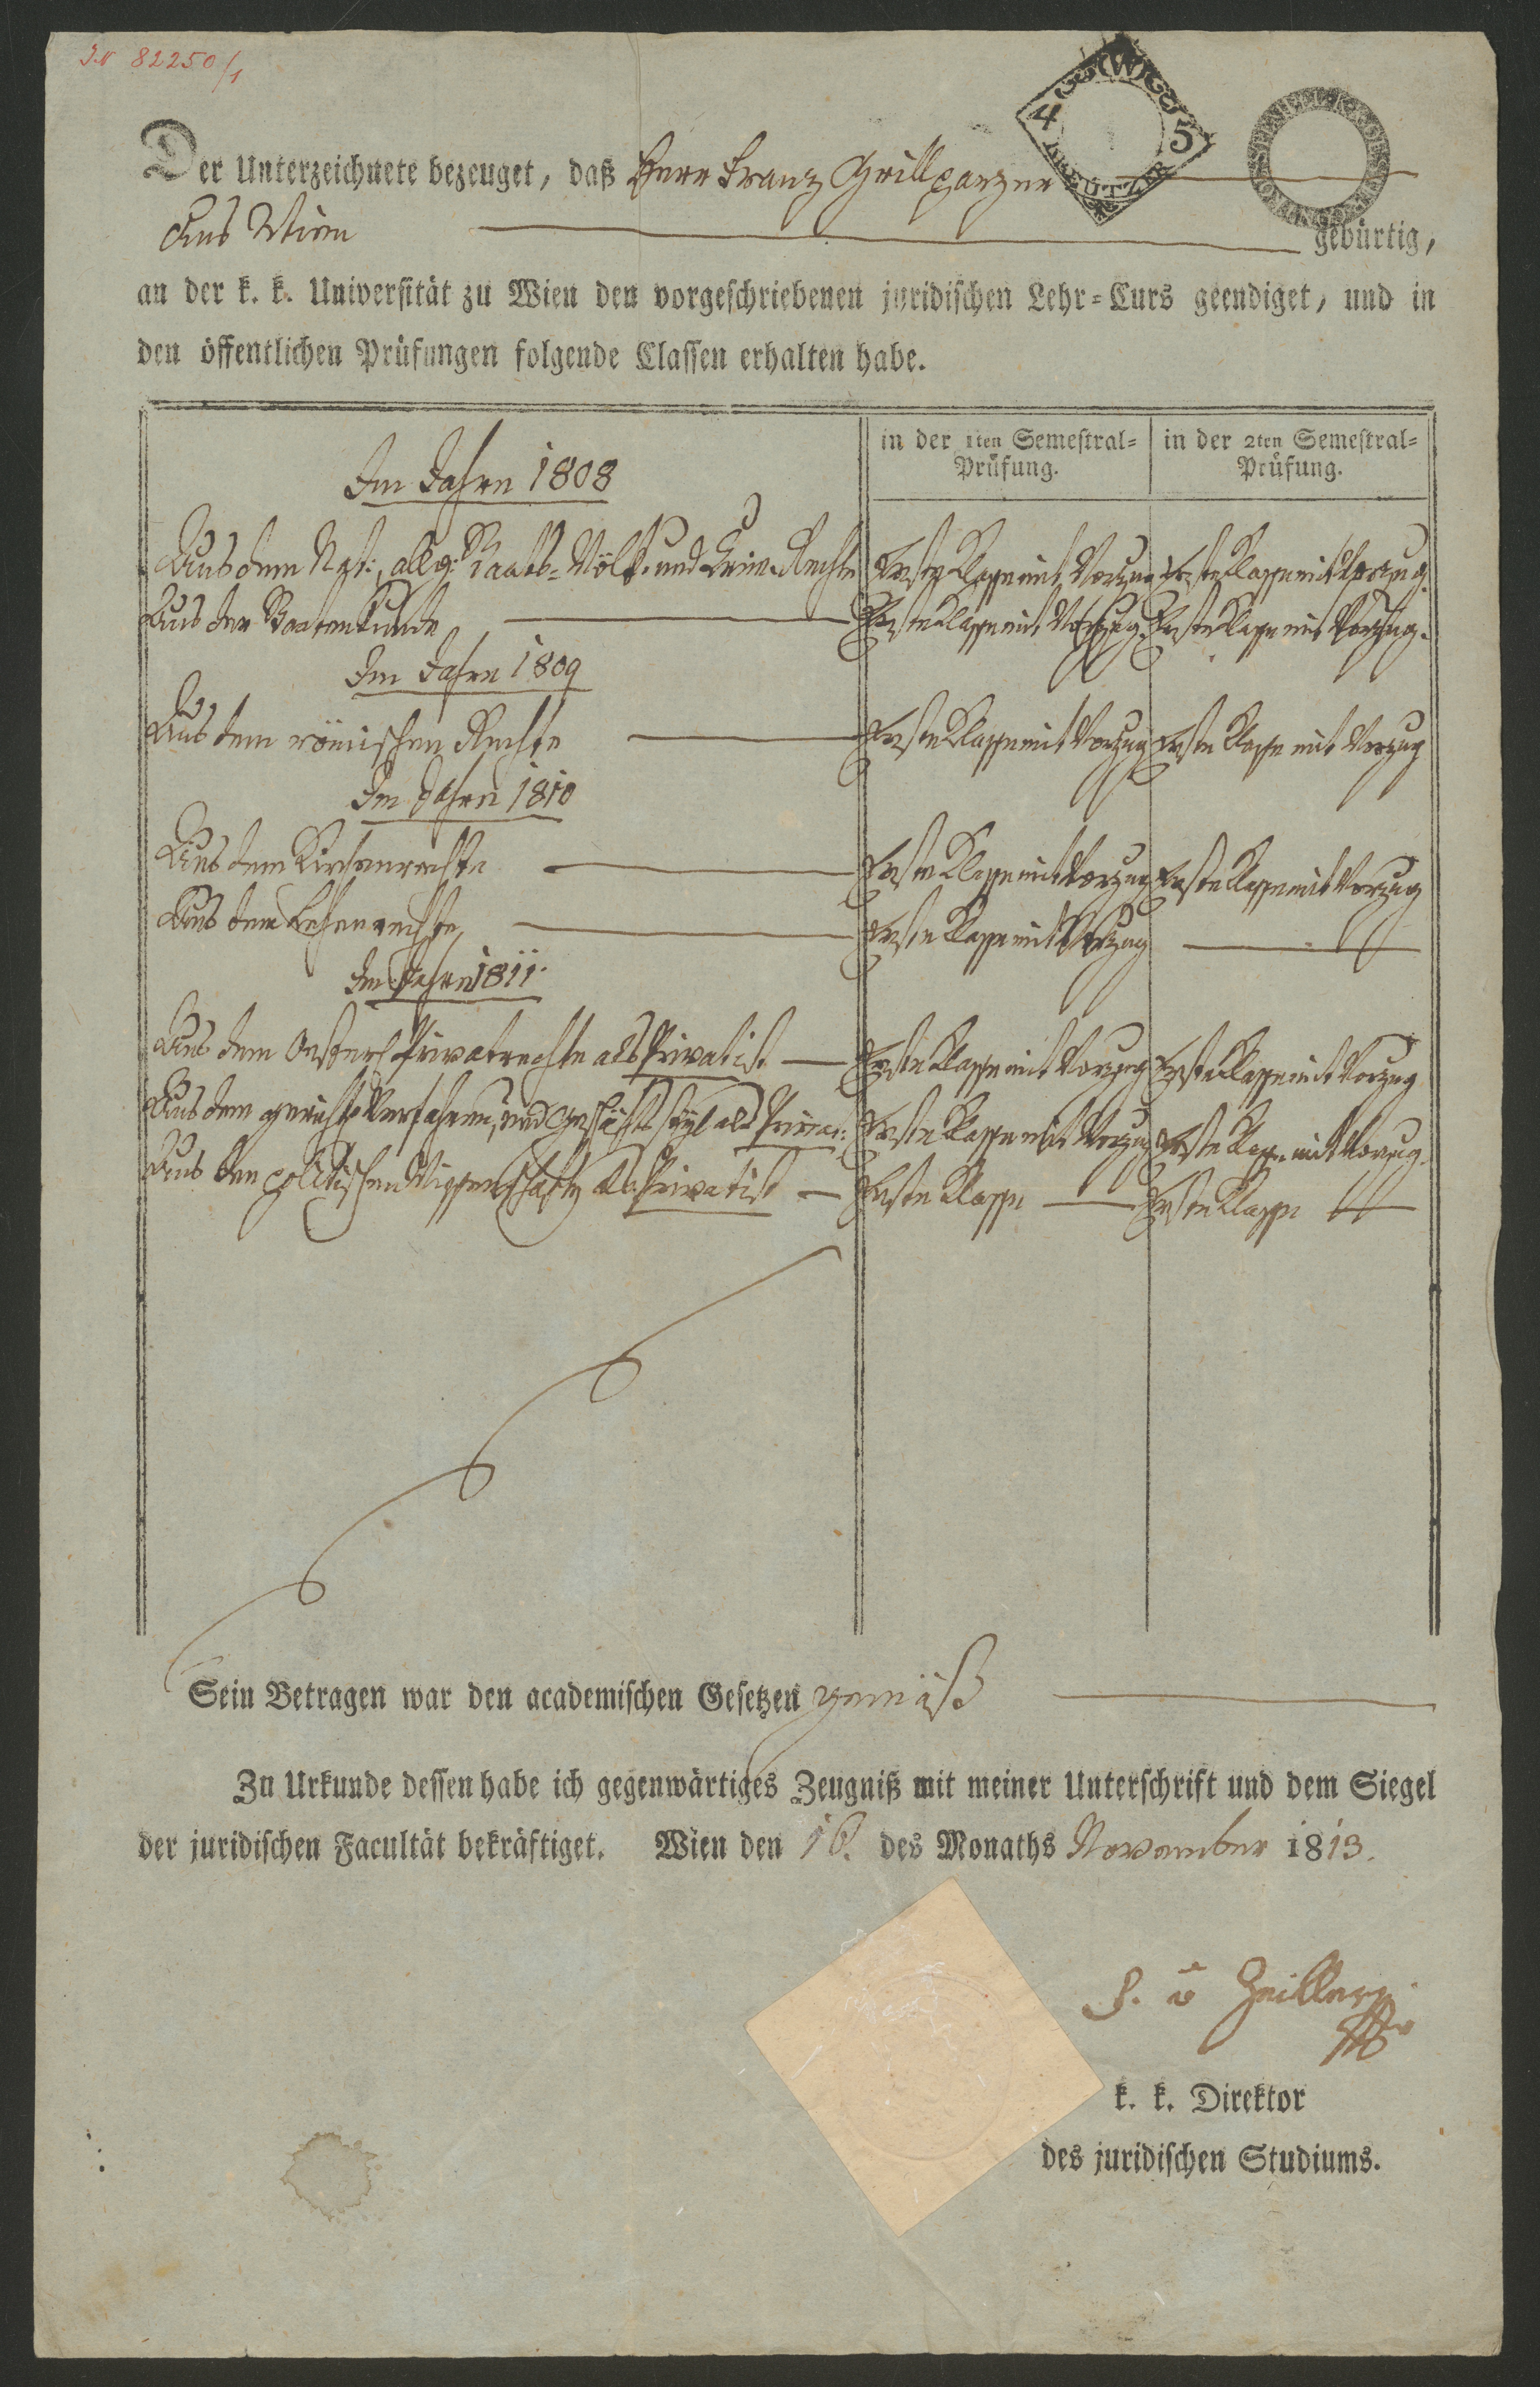 IN 82250/1
4 W 5
KREUTZER
Der Unterzeichnete bezeuget, daß Herr Franz Grillparzer
Aus Wien gebürtig,
an der k. k. Universität zu Wien den vorgeschriebenen juridischen Lehr=Curs geendiget, und in
den öffentlichen Prüfungen folgende Classen erhalten habe.
in der 1ten Semestral=Prüfung. in der 2ten Semestral=Prüfung.
Im Jahre 1808
Aus dem Nat:, allg: Staats= Völk. und Krim. Rechte Erste Klasse mit Vorzug Erste Klasse mit Vorzug.
Aus der Staatenkunde Erste Klasse mit Vorzug. Erste Klasse mit Vorzug.
Im Jahre 1809
Aus dem römischen Rechte Erste Klasse mit Vorzug Erste Klasse mit Vorzug
Im Jahre 1810
Aus dem Kirchenrechte Erste Klasse mit Vorzug Erste Klasse mit Vorzug
Aus dem Lehenrechte, Erste Klasse mit Vorzug
Im Jahre 1811.
Aus dem Oesterr. Privatrechte als Privatist Erste Klasse mit Vorzug Erste Klasse mit Vorzug
Aus dem gerichtl. Verfahren, und Geschäftsstyl als Privat: Erste Klasse mit Vorzug Erste Klasse mit Vorzug.
Aus den politischen Wissenschaften als Privatist Erste Klasse Erste Klasse
Sein Betragen war den academischen Gesetzen gemäß
Zu Urkunde dessen habe ich gegenwärtiges Zeugniß mit meiner Unterschrift und dem Siegel
der juridischen Facultät bekräftiget. Wien den 16. des Monaths November 1813.
F. v Zeiller
k. k. Direktor
des juridischen Studiums.